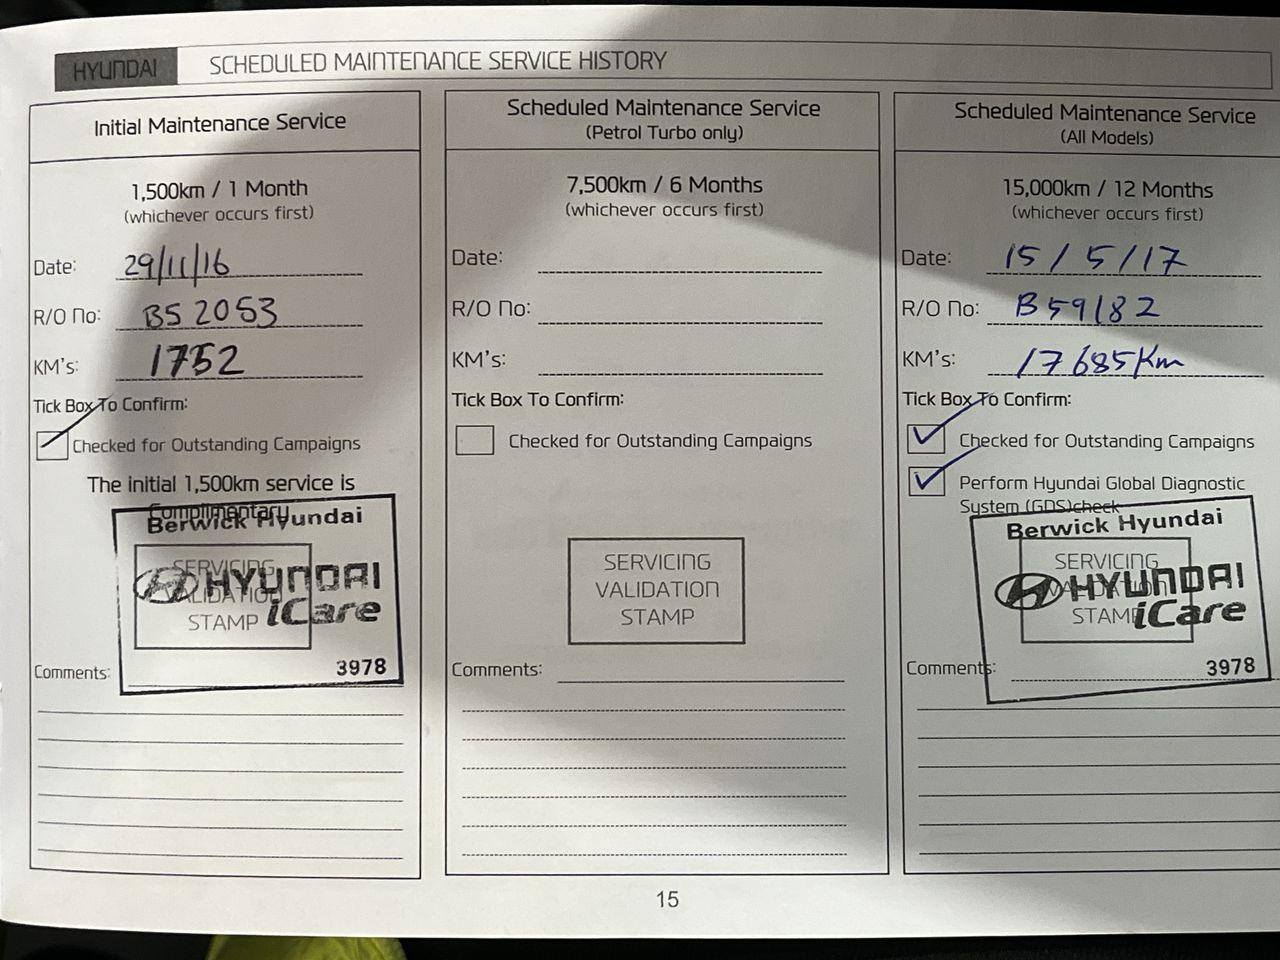 HYUNDAI SCHEDULED MAINTENANCE SERVICE HISTORY
Initial Maintenance Service
1,500km / 1 Month
(whichever occurs first)
Date: 29/11/16
R/O No: BS 2053
KM's: 1752
Tick Box To Confirm:
Checked for Outstanding Campaigns
The initial 1,500km service is
Complimentary
Berwick Hyundai
SERVICING
VALIDATION
STAMP
HYUNDAI
iCare
3978
Comments:
Scheduled Maintenance Service
(Petrol Turbo only)
7,500km / 6 Months
(whichever occurs first)
Date:
R/O No:
KM's:
Tick Box To Confirm:
Checked for Outstanding Campaigns
SERVICING
VALIDATION
STAMP
Comments:
Scheduled Maintenance Service
(All Models)
15,000km / 12 Months
(whichever occurs first)
Date: 15/5/17
R/O No: B59182
KM's: 17685Km
Tick Box To Confirm:
Checked for Outstanding Campaigns
Perform Hyundai Global Diagnostic
System (GDS)check
Berwick Hyundai
SERVICING
VALIDATION
STAMP
HYUNDAI
iCare
3978
Comments:
15